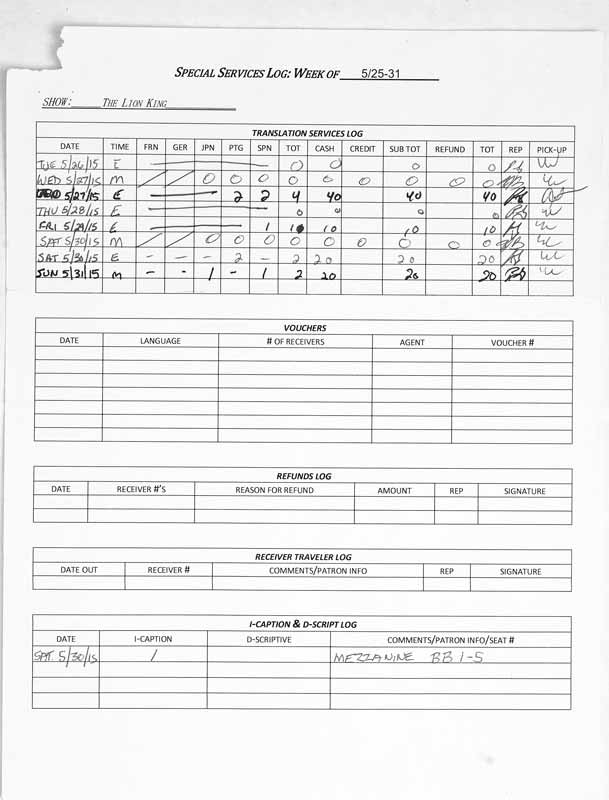 SPECIAL SERVICES LOG: WEEK OF 5/25-31
SHOW: THE LION KING
TRANSLATION SERVICES LOG
DATE TIME FRN GER JPN PTG SPN TOT CASH CREDIT SUB TOT REFUND TOT REP PICK-UP
TUE 5/26/15 E 0 0 0 0
WED 5/27/15 M 0 0 0 0 0 0 0 0 0
5/27/15 E 2 2 4 40 40 40
THU 5/28/15 0 0 0 0
FRI 5/29/15 E 1 1 10 10 10
SAT 5/30/15 M 0 0 0 0 0 0 0 0 0
SAT 5/30/15 E - - - 2 - 2 20 20 20
SUN 5/31/15 M - - 1 - 1 2 20 20 20
VOUCHERS
DATE LANGUAGE # OF RECEIVERS AGENT VOUCHER #
REFUNDS LOG
DATE RECEIVER #'S REASON FOR REFUND AMOUNT REP SIGNATURE
RECEIVER TRAVELER LOG
DATE OUT RECEIVER # COMMENTS/PATRON INFO REP SIGNATURE
I-CAPTION & D-SCRIPT LOG
DATE I-CAPTION D-SCRIPTIVE COMMENTS/PATRON INFO/SEAT #
SAT 5/30/15 1 MEZZANINE BB 1-5